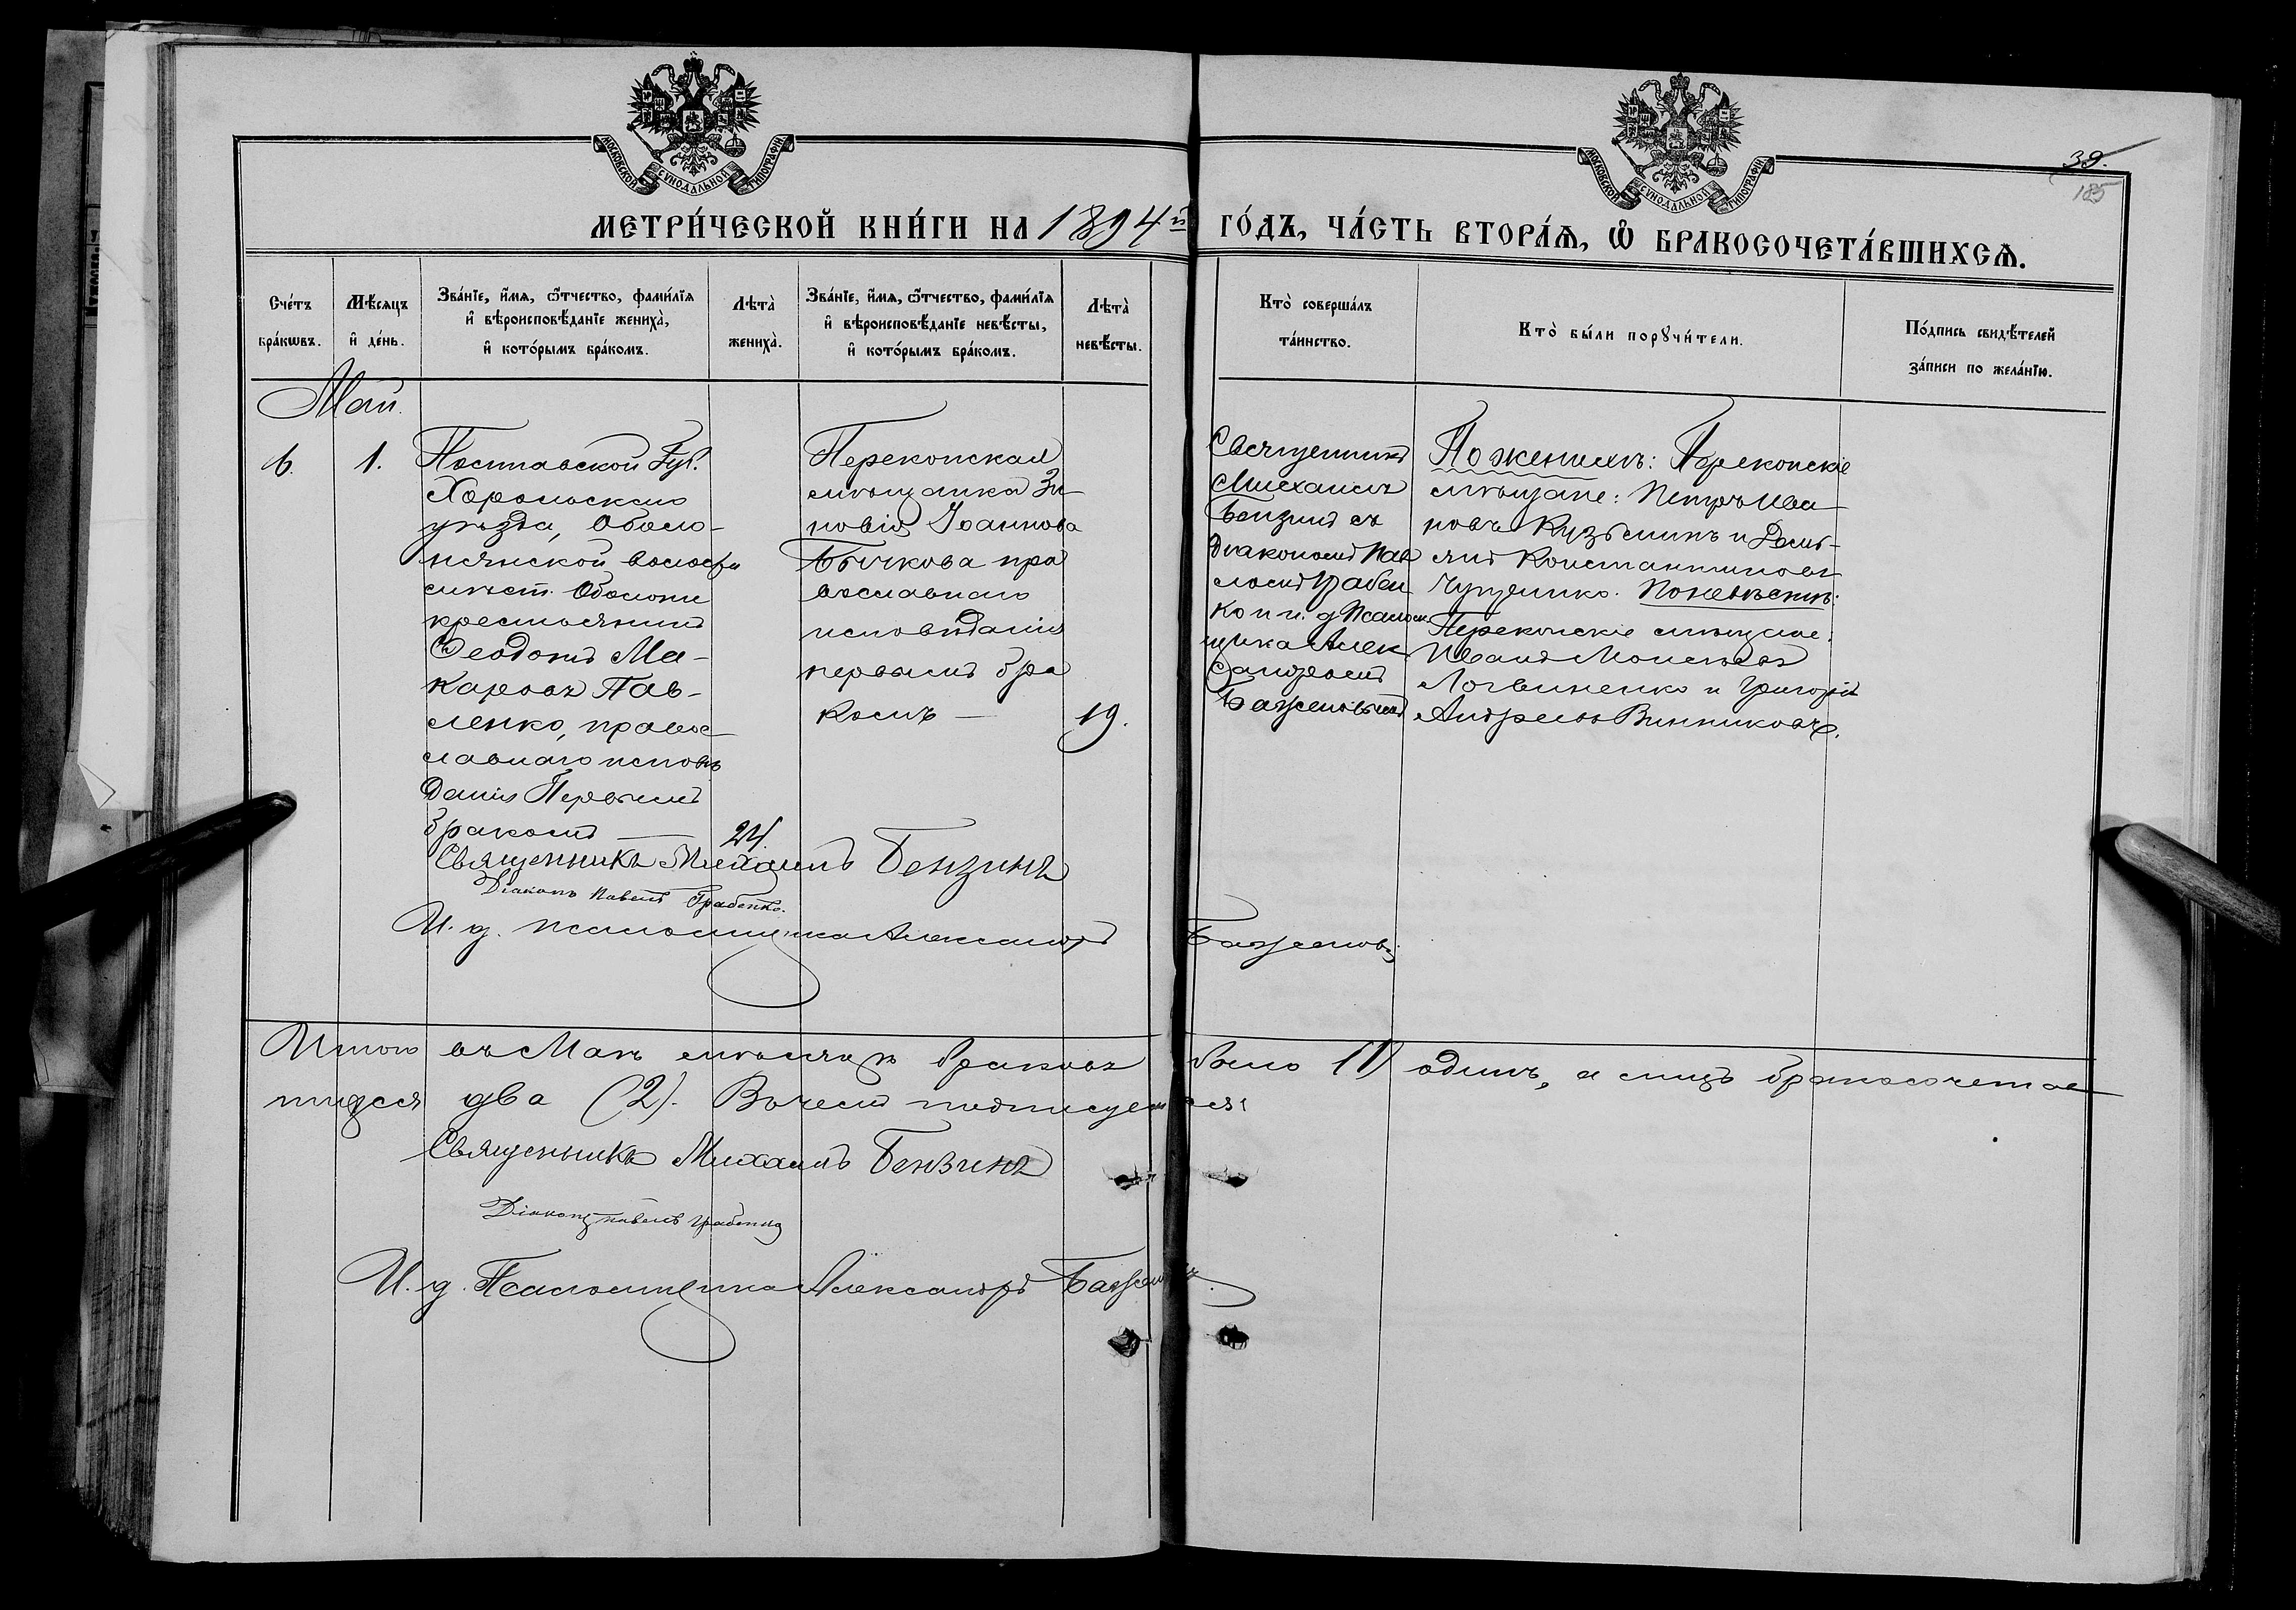 МОСКОВСКОЙ СѴНОДАЛЬНОЙ ТИПОГРАФІИ
МОСКОВСКОЙ СѴНОДАЛЬНОЙ ТИПОГРАФІИ
39.
185
МЕТРИ́ЧЕСКОЙ КНИ́ГИ НА 1894й ГО́ДЪ, ЧА́СТЬ ВТОРА́Ѧ, Ѽ БРАКОСОЧЕТА́ВШИХСѦ.
Сче́тъ
бра́кѡвъ.
Мѣ́сяцъ
и҆ де́нь.
Зва́нїе, и҆́мѧ, ѻ҆́тчество, фамн́лїѧ
и҆ вѣроисповѣ́данїе жениха̀,
и҆ кото́рымъ бра́комъ.
Лѣта̀
жениха̀.
Зва́нїе, и҆́мѧ, ѻ҆́тчество, фами́лїѧ
и҆ вѣроисповѣ́данїе невѣ́сты,
и҆ кото́рымъ бра́комъ.
Лѣта̀
невѣ́сты.
Кто̀ соверша́лъ
та́инство.
Кто̀ бы́ли порꙋчи́тели.
По́дпись свидѣ́телей
за́писи по жела́нїю.
Май.
6. 1.
Полтавской Губ.
Хорольскаго
уѣзда, Оболо-
нянской волости
мѣст. Оболони
крестьянинъ
Ѳеодотъ Ма-
каровъ Пав-
ленко, правос-
лавнаго исповѣ
данія Первымъ
бракомъ — 24.
Перекопская
мѣщанка Зи-
новія Іоаннова
Бычкова пра
вославнаго
исповѣданія
первымъ бра
комъ — 19.
Священникъ
Михаилъ
Бензинъ съ
Діакономъ Пав
ломъ Грабен
ко и и. д. Псалом
щика Алек
сандромъ
Баженовымъ
По женихѣ: Перекопскіе
мѣщане: Петръ Ива
новъ Кузьминъ и Демь-
янъ Константиновъ
Чущенко. По невѣстѣ:
Перекопскіе мѣщане:
Иванъ Моисеевъ
Логвиненко и Григорій
Андреевъ Винниковъ.
Священникъ Михаилъ Бензинъ
Діаконъ Павелъ Грабенко.
И. д. псаломщика Александръ Баженовъ.
Итого въ Маѣ мѣсяцѣ браковъ было (1) одинъ, а лицъ бракосочетав
шихся два (2). Въ чемъ подписуемся:
Священникъ Михаилъ Бензинъ
Діаконъ Павелъ Грабенко
И. д. Псаломщика Александръ Баженовъ.